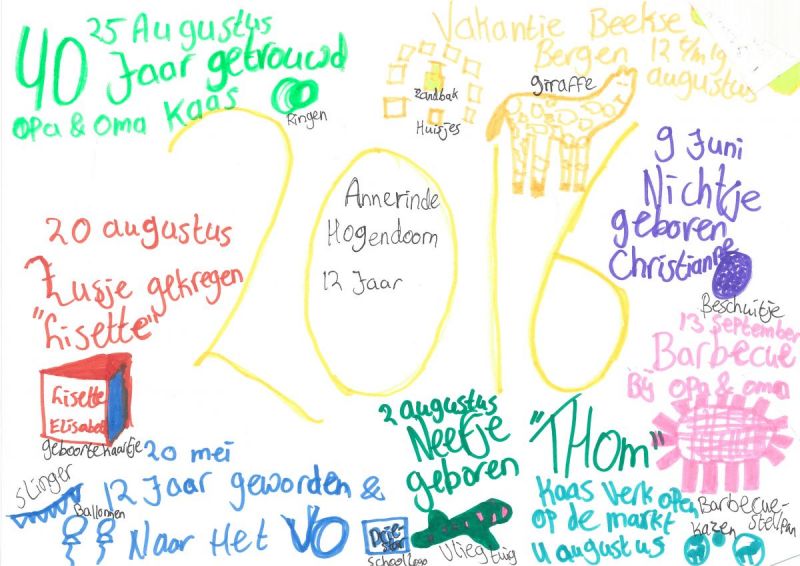 25 Augustus
40 Jaar getrouwd
opa & oma Kaas
Ringen
Vakantie Beekse
Bergen 12 t/m 19
augustus
Zandbak
Huisjes
giraffe
2016
Annerinde
Hogendoorn
12 Jaar
9 Juni
Nichtje
geboren
Christianne
Beschuitje
20 augustus
Zusje gekregen
"Lisette"
Lisette
Elisabeth
geboortekaartje
13 september
Barbecue
Bij opa & oma
Barbecue-
stel
pan
2 augustus
Neefje
geboren
"THom"
Vliegtuig
Kaas verkopen
op de markt
11 augustus
Kazen
20 mei
12 Jaar geworden &
Naar Het VO
Slinger
Ballonnen
Drie-
star
School logo